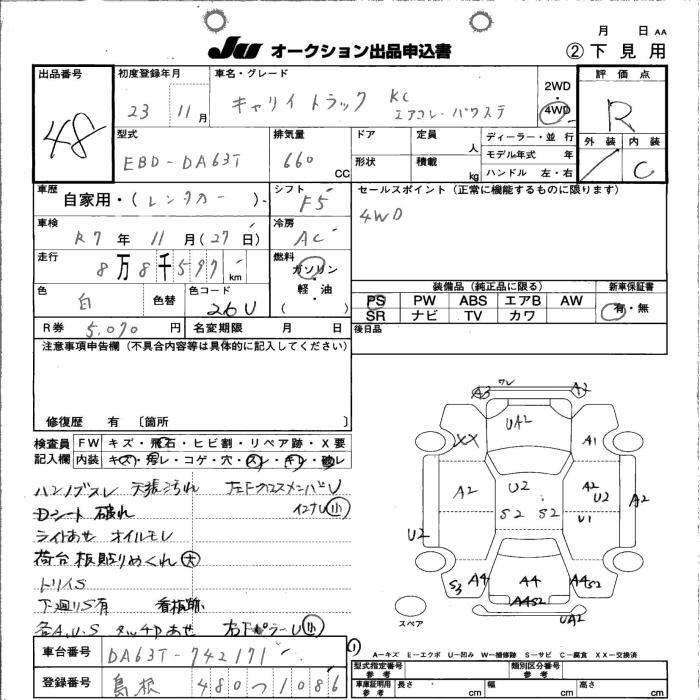 月　日 AA
JU オークション出品申込書
② 下見用
出品番号 48
初度登録年月 23 11月
車名・グレード キャリイトラック KC エアコン・パワステ
2WD・4WD
評価点 R
外装 内装 C
型式 EBD-DA63T
排気量 660 CC
ドア 定員 人
形状 積載 kg
ディーラー・並行
モデル年式 年
ハンドル 左・右
車歴 自家用・(レンタカー)
シフト F5
セールスポイント (正常に機能するものに限ります)
4WD
車検 R7年 11月(27日)
冷房 AC
走行 8万8千597km
燃料 ガソリン・軽油
( )
色 白 色替
色コード 26U
装備品 (純正品に限る)
新車保証書
PS PW ABS エアB AW
SR ナビ TV カワ
有・無
R券 5,070円
名変期限 月 日
後日品
注意事項申告欄 (不具合内容等は具体的に記入してください)
修復歴 有 〔箇所 〕
検査員記入欄
FW キズ・飛石・ヒビ割・リペア跡・X要
内装 キズ・汚レ・コゲ・穴・スレ・キレ・破レ
ハンドルスレ 天張汚れ 左Fクロスメンバ U
Dシート 破れ インナU 小
ライトあせ オイルモレ
荷台板貼りめくれ 大
トリイS
下廻りS有 看板跡
各A.U.S タッチPあせ 右ドアミラーU 小
A3
A2
UA2
XX
A1
A2
U2
A2
U2
A2
S2
S2
U1
U2
S3
A4
A4
A4S2
A4S2
UA2
スペア
A-キズ E-エクボ U-凹み W-補修跡 S-サビ C-腐食 XX-交換済
車台番号 DA63T-742171
登録番号 島根 480 つ 1086
型式指定番号 参考
類別区分番号 参考
車庫証明用 参考
長さ cm 幅 cm 高さ cm